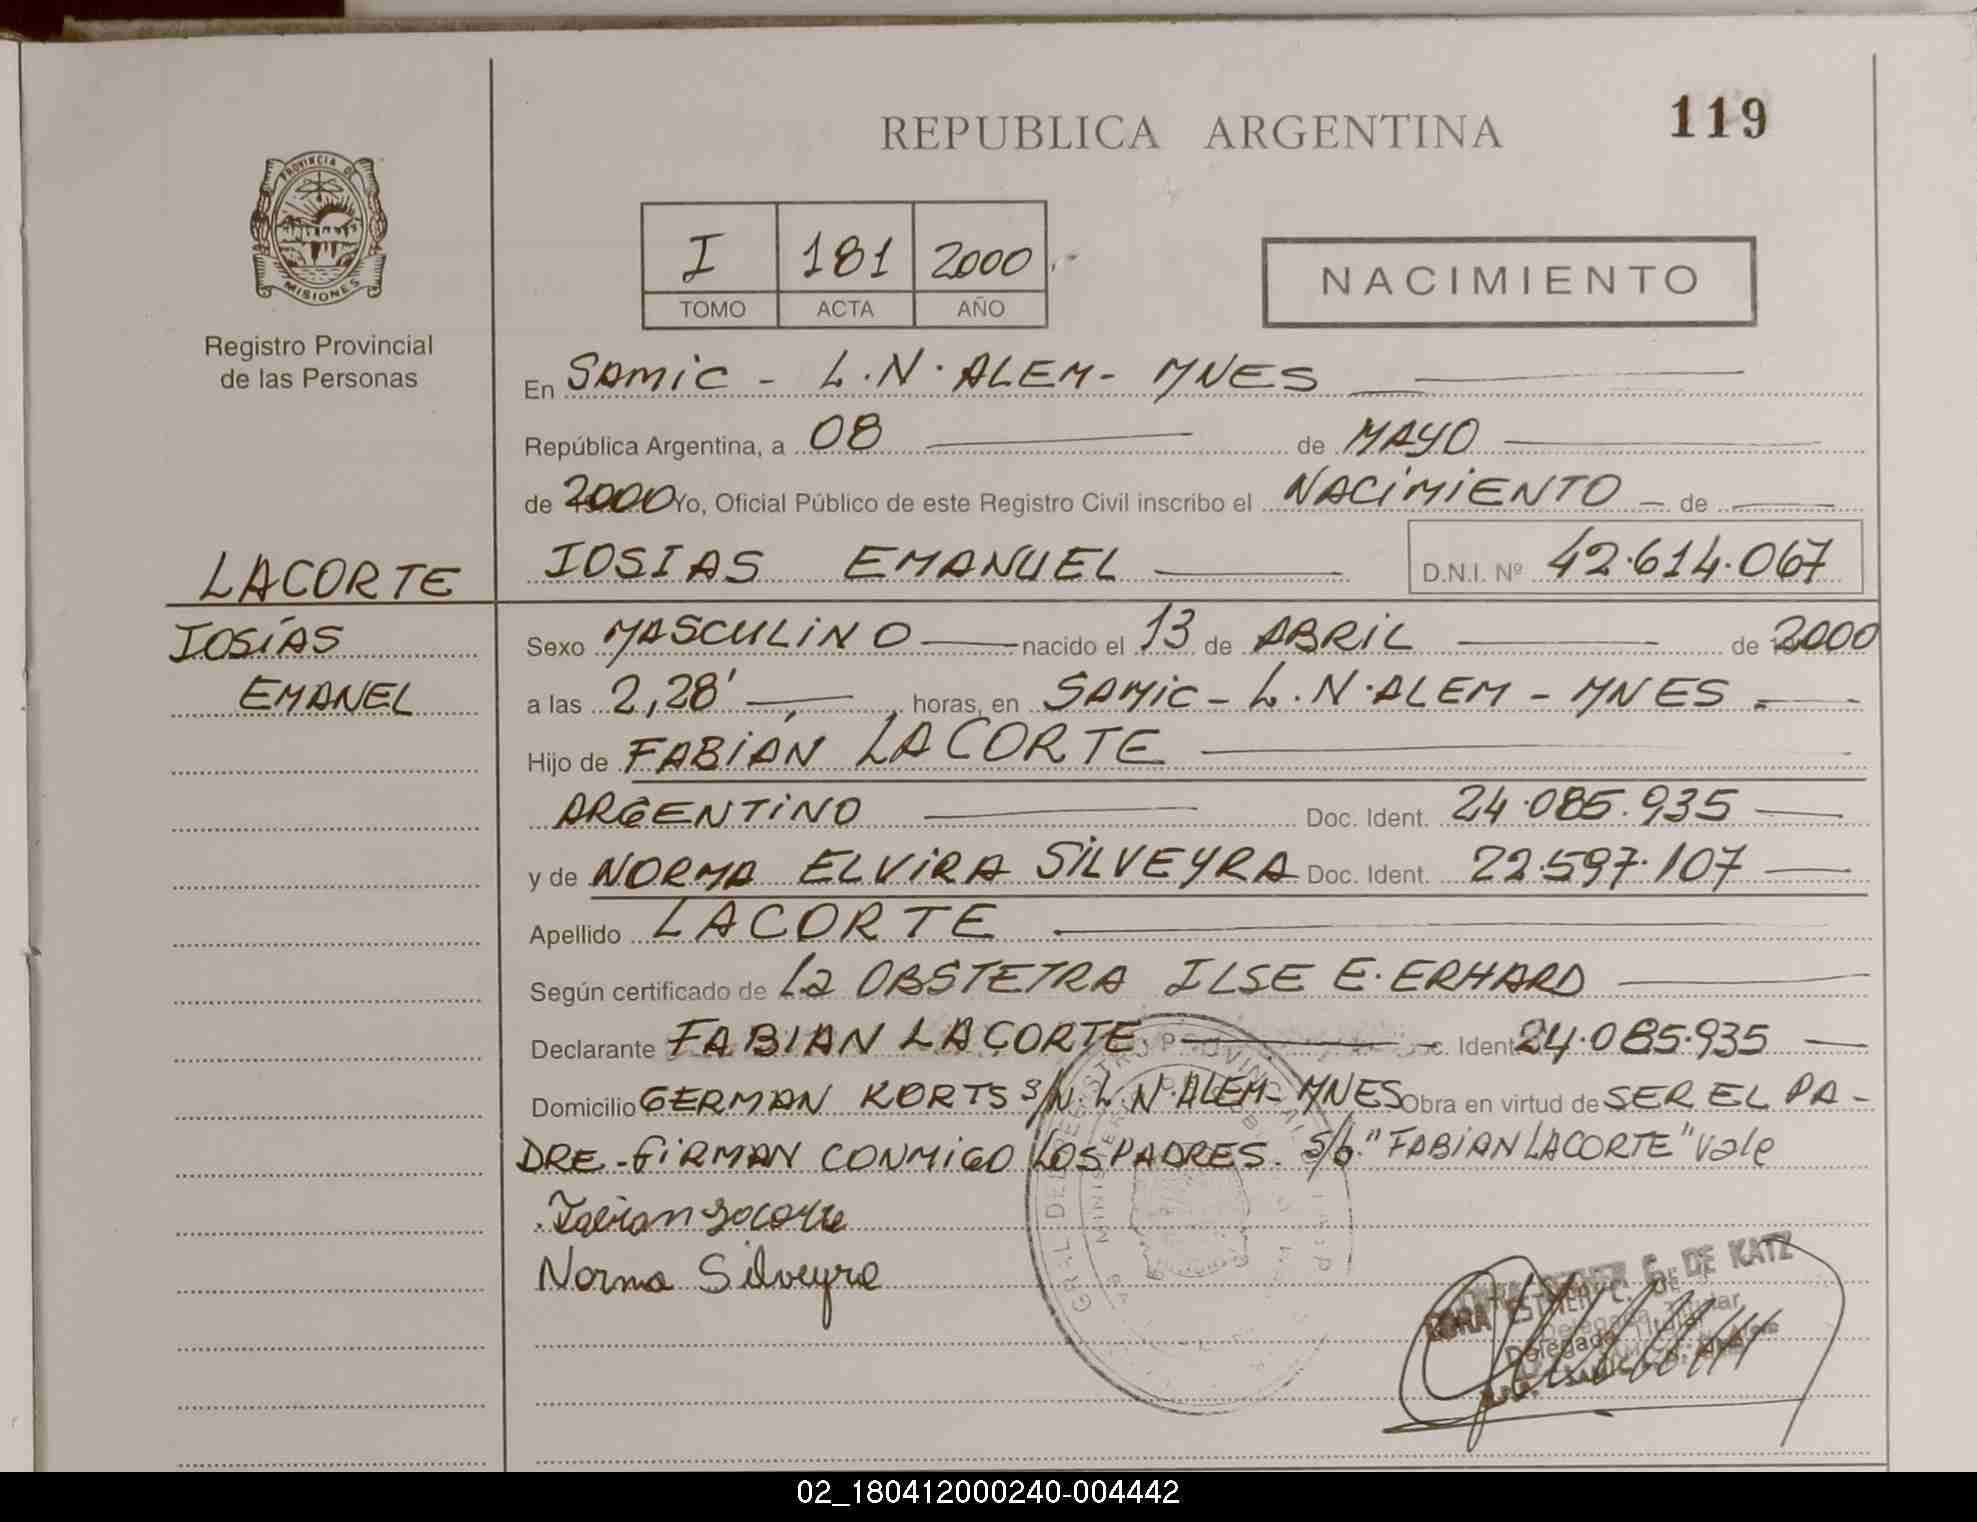 REPUBLICA ARGENTINA
119
PROVINCIA DE
MISIONES
Registro Provincial
de las Personas
I 181 2000
TOMO ACTA AÑO
NACIMIENTO
En SAMIC - L.N. ALEM - MNES
República Argentina, a 08 de MAYO
de 2000 Yo, Oficial Público de este Registro Civil inscribo el NACIMIENTO de
IOSIAS EMANUEL D.N.I. Nº 42.614.067
LACORTE
IOSÍAS
EMANEL
Sexo MASCULINO nacido el 13 de ABRIL de 2000
a las 2,28' horas, en SAMIC - L.N. ALEM - MNES
Hijo de FABIÁN LACORTE
ARGENTINO Doc. Ident. 24.085.935
y de NORMA ELVIRA SILVEYRA Doc. Ident. 22.597.107
Apellido LACORTE
Según certificado de La OBSTETRA ILSE E. ERHARD
Declarante FABIAN LACORTE c. Ident 24.085.935
Domicilio GERMAN KORTS S/N. L.N. ALEM - MNES Obra en virtud de SER EL PA-
DRE. - FIRMAN CONMIGO LOS PADRES. S/b. "FABIAN LACORTE" Vale
Fabian Lacorte
Norma Silveyra
ESTHER C. DE KATZ
Delegada Titular
02_180412000240-004442